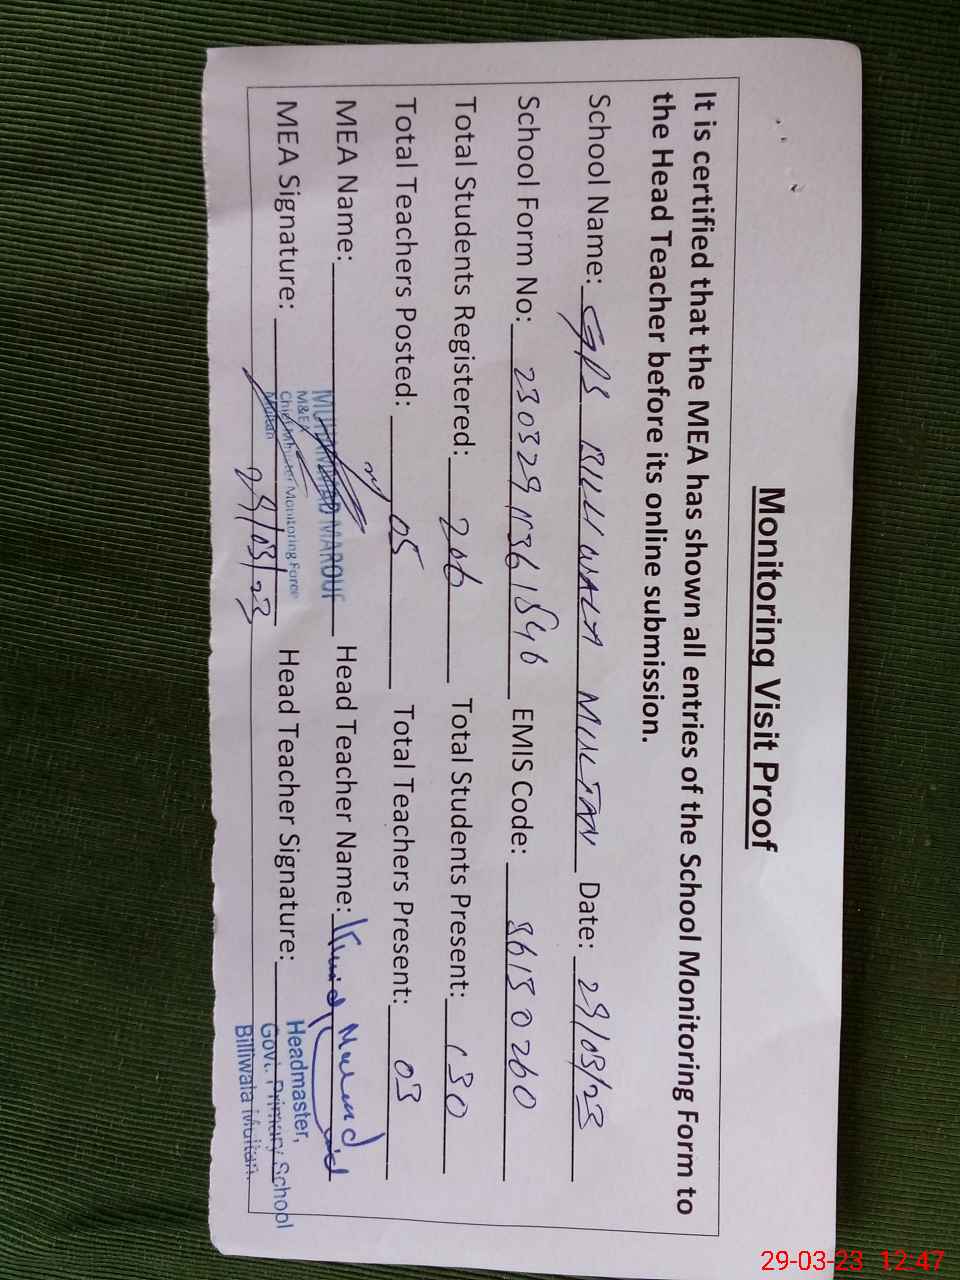 Monitoring Visit Proof
It is certified that the MEA has shown all entries of the School Monitoring Form to
the Head Teacher before its online submission.
School Name: GPS BILLI WALA MULTAN Date: 29/03/23
School Form No: EMIS Code:
Total Students Registered: 206 Total Students Present: 130
Total Teachers Posted: 05 Total Teachers Present: 03
MEA Name: MUHAMMAD MAROUF Head Teacher Name:
MEA Signature: Head Teacher Signature:
M&EA
Chief Minister Monitoring Force
Multan
29/03/23
Headmaster,
Govt. Primary School
Billiwala Multan.
29-03-23 12:47